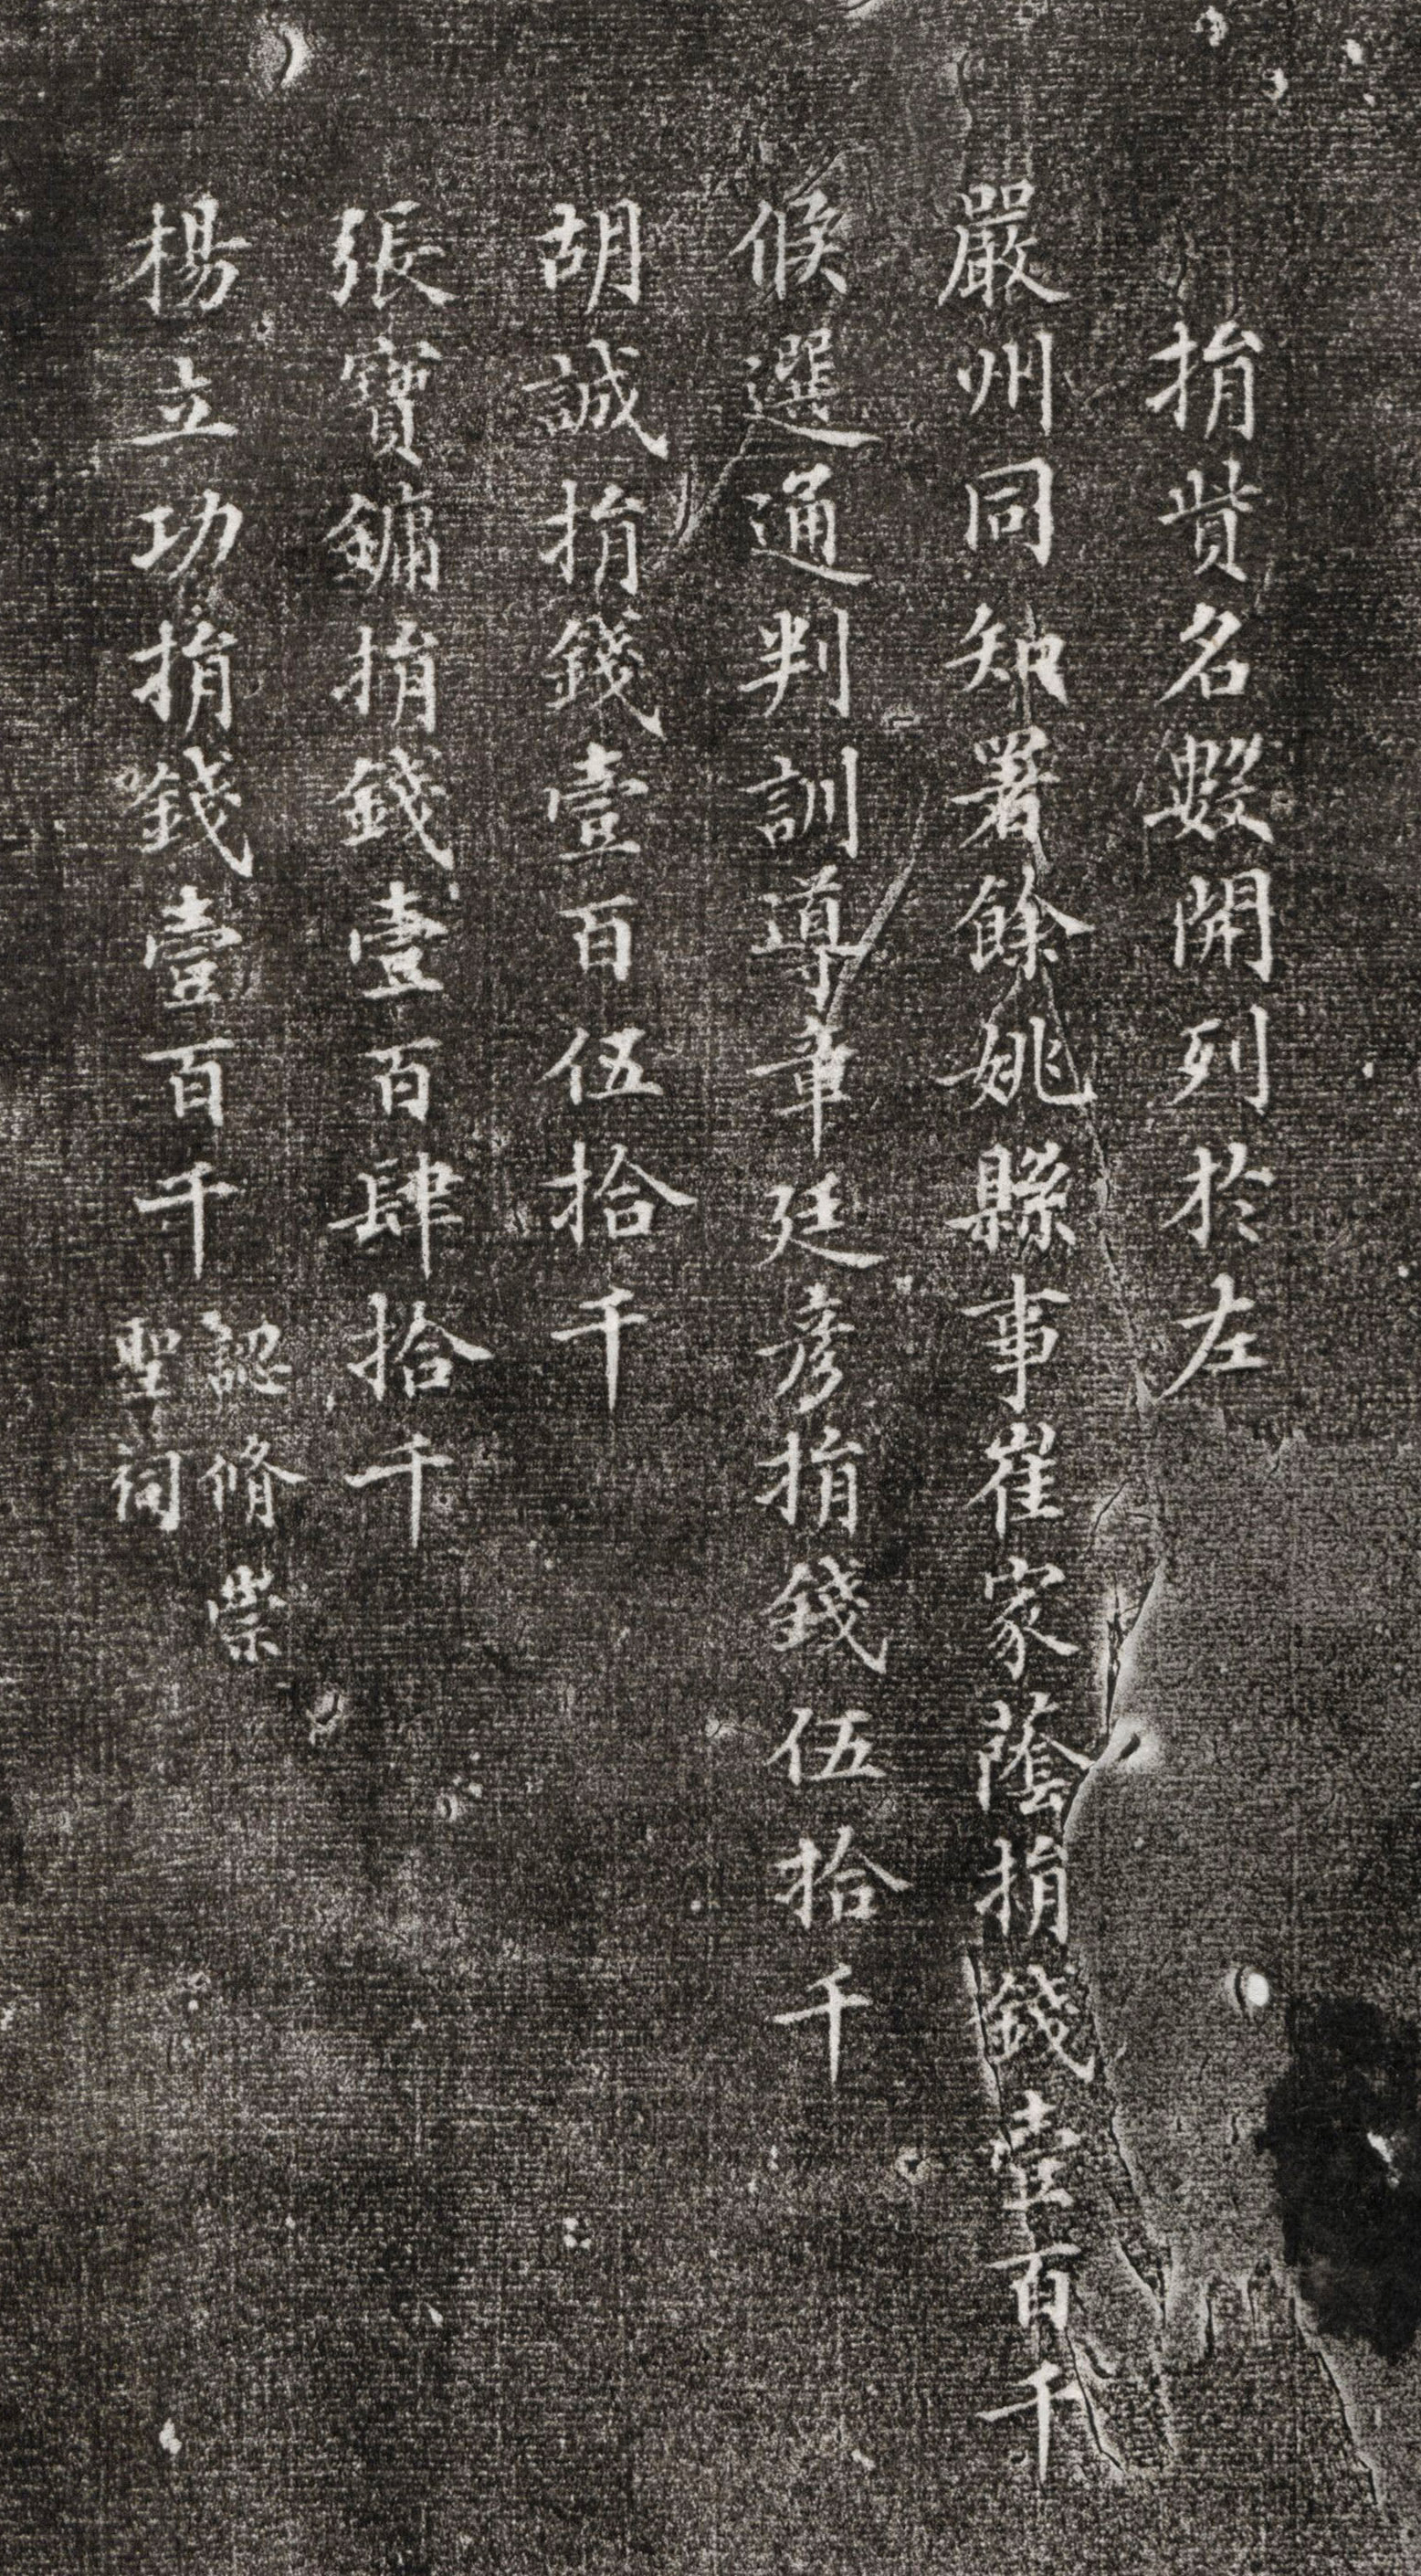 捐貲名數開列於左
嚴州同知署餘姚縣事崔家蔭捐錢壹百千
候選通判訓導章廷彥捐錢伍拾千
胡誠捐錢壹百伍拾千
張寶鏞捐錢壹百肆拾千
楊立功捐錢壹百千
認脩崇
聖祠